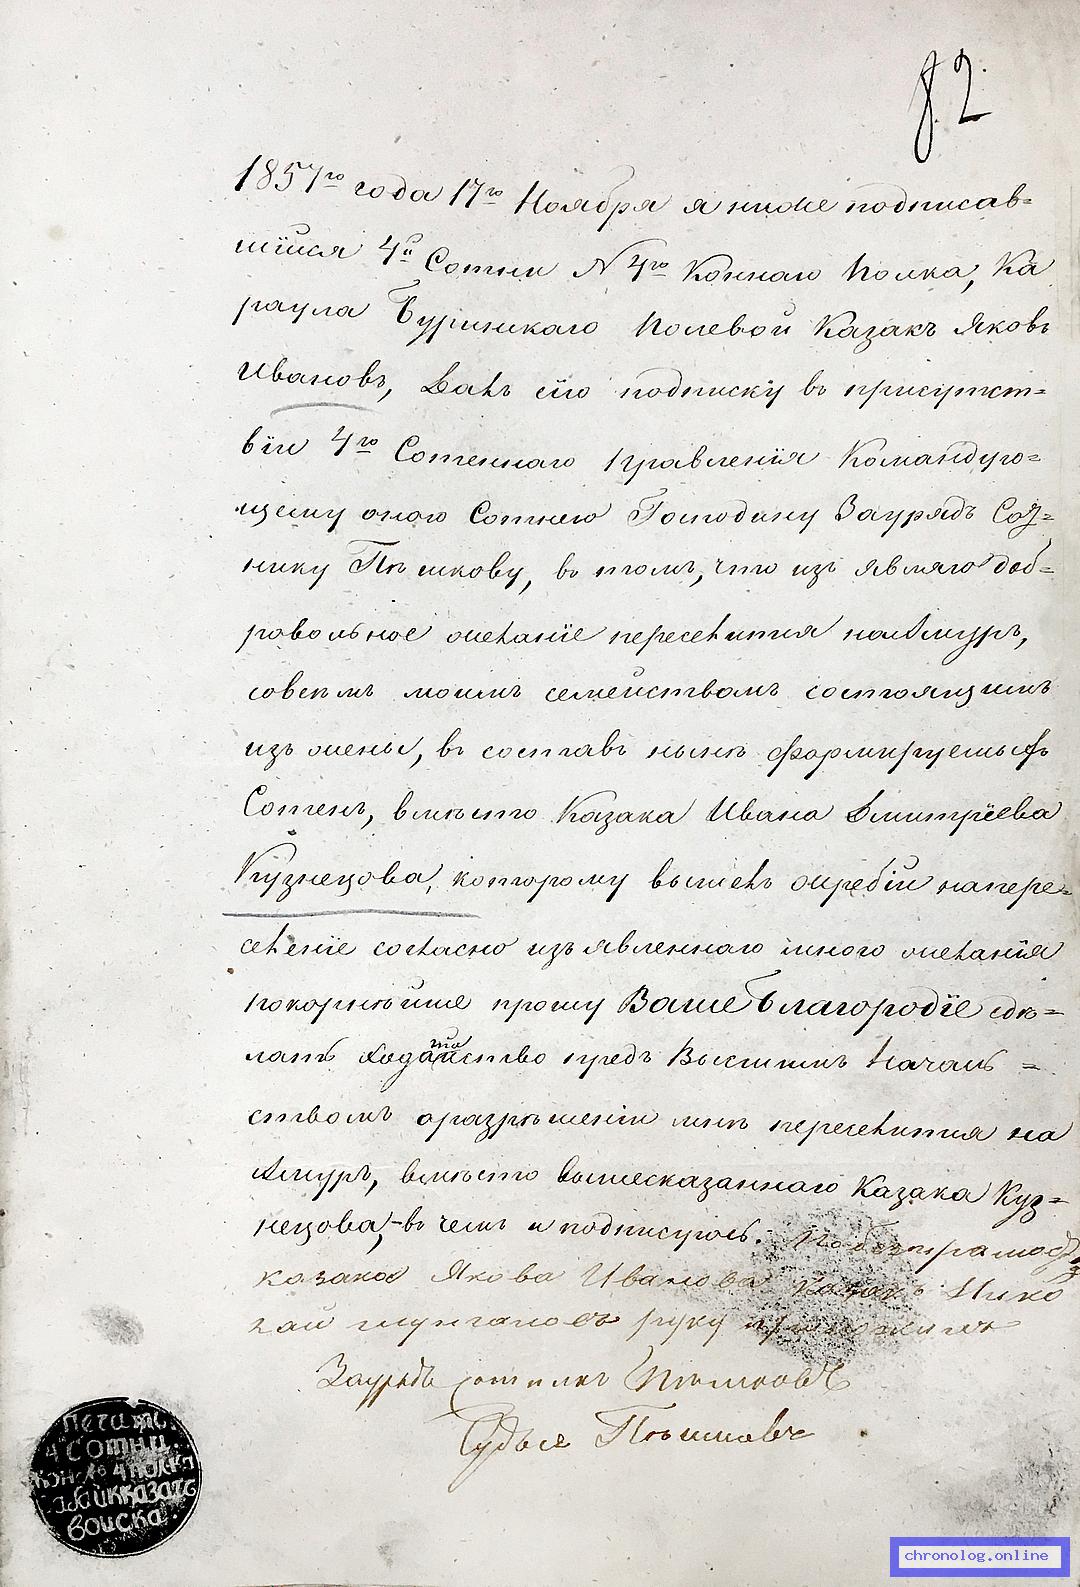 82
1857го года 17го Ноября я ниже подписав=
шійся 4й Сотни N 4го Коннаго Полка, Ка
раула Буринскаго Полевой Казакъ Яковъ
Ивановъ, Далъ сію подписку въ присутст=
віи 4го Сотеннаго Правленія Командую=
щему оною Сотнею Господину Заурядъ Сот=
нику Пѣшкову, въ томъ, что изъявляю доб=
ровольное желаніе переселится на Амуръ,
совсѣмъ моимъ семействомъ состоящимъ
изъ жены, въ составъ нынѣ формируемыхъ
Сотенъ, вмѣсто Казака Ивана Дмитріева
Кузнецова, которому вышелъ жребій напере=
селеніе согласно изъявленнаго мною желанія
покорнѣйше прошу Ваше Благородіе сдѣ=
лать ходатайство предъ Высшимъ Началь=
ствомъ оразрѣшеніи мнѣ переселится на
Амуръ, вмѣсто вышесказаннаго Казака Куз=
нецова, въ чемъ и подписуюсь.
казака Якова Иванова казакъ Нико
лай руку приложилъ
Заурядъ Сотникъ Пѣшковъ
Судья Пѣшковъ
Печать
4 Сотни
Кон. № 4 полка
Забайк казач
Войска.
chronolog.online